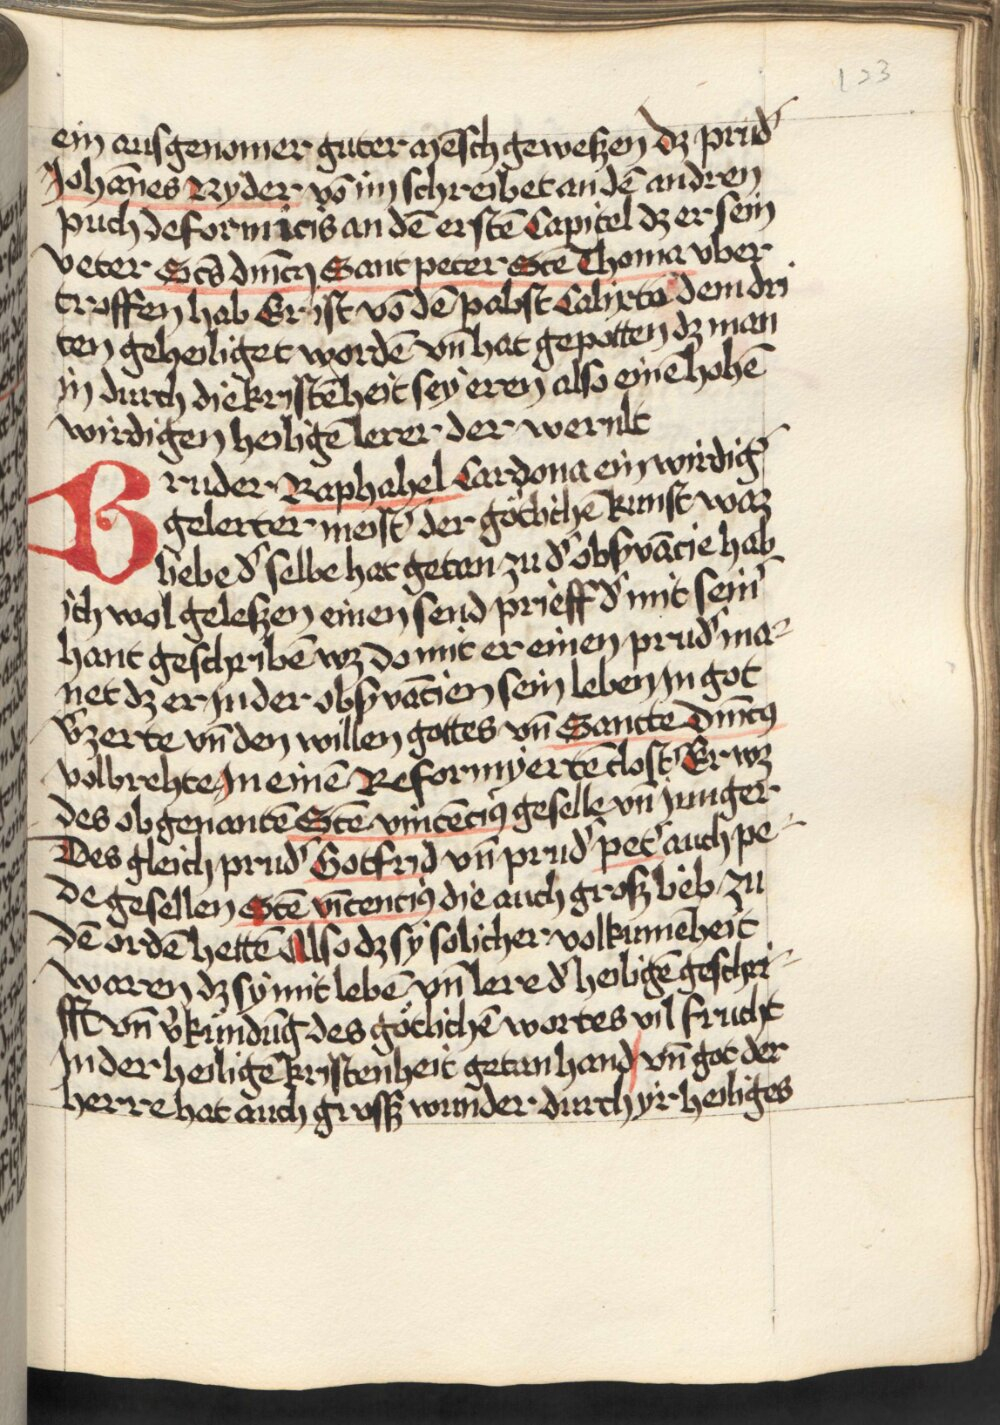 123
ein ausgenomer guter mēsch geweßen dz prud᷑
Johānes Ryder vō im schreibet an dē andren
puch de formicis an dē erstē Capitel dz er sein
veter Scs᷑ dm̄icꝰ Sant peter Scē Thoma vber
troffen hab Er ist vō dē pabst Calixto dem dri
ten geheiliget wordē vn̄ hat gepotten dz man
in durch die kristēheit sey eren also einē hohē
wirdigen heiligē lerer der wernlt
Bruder Raphahel Cardona ein wirdig᷑
gelerter meist᷑ der götlichē kunst waz
liebe d᷑ selbe hat getan zu d᷑ obsꝰvācie hab
ich wol geleßen einen send prieff d᷑ mit sein᷑
hant geschribē wz do mit er einen prud᷑ ma-
net dz er in der obsꝰvācien sein leben in got
v᷑zerte vn̄ den willen gottes vn̄ Sancte Dm̄icꝰ
volbrehte in einē Reformyertē clost᷑ Er wz
des obgenantē Scē vincēciꝰ geselle vn̄ junger
Des gleich prud᷑ Gotfrid vn̄ prud᷑ pet᷑ auch pe-
de gesellen Scē vīcenciꝰ die auch groß lieb zu
dē ordē hettē Also dz sy solicher volkumēheit
waren dz sy mit lebē vn̄ lere d᷑ heiligē geschri-
fft vn̄ v᷑kündūg des götlichē wortes vil frucht
In der heiligē kristenheit getan hand vn̄ got der
herre hat auch groß wunder durch yr heiliges